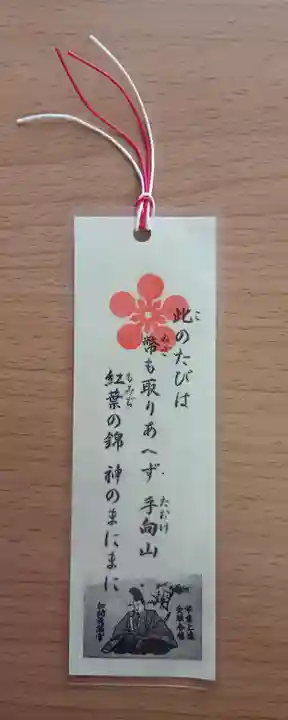 此のたびは
幣も取りあへず 手向山
紅葉の錦 神のまにまに
学業上達